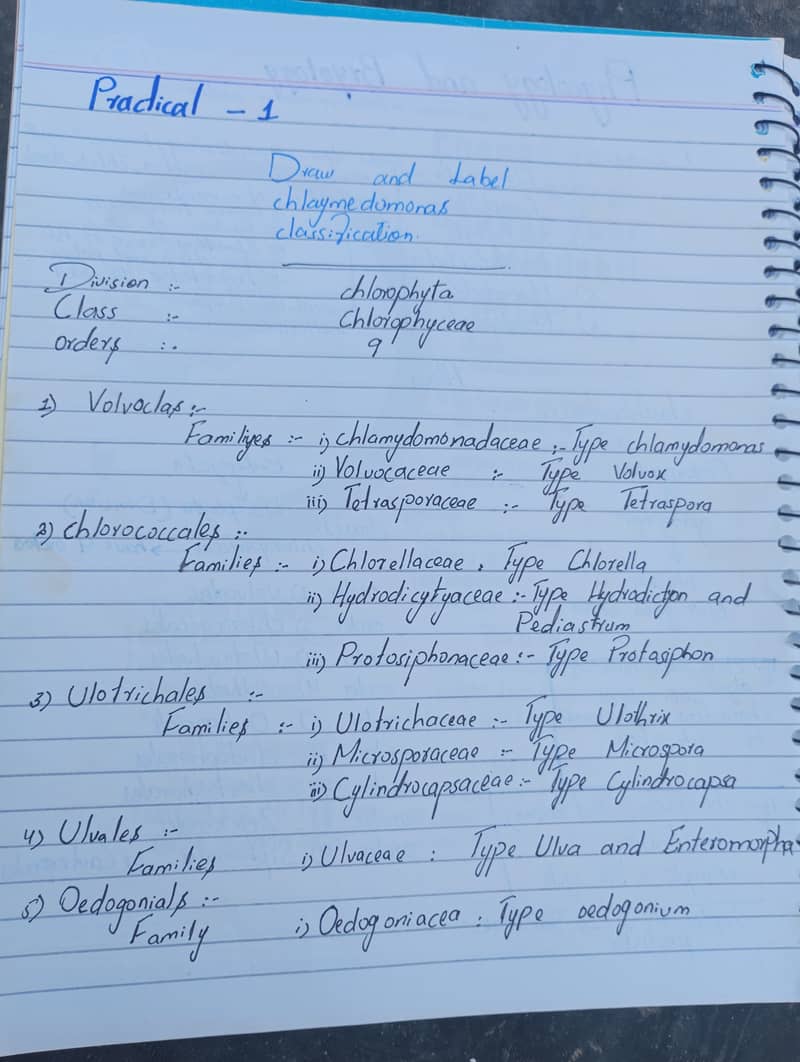 Practical - 1
Draw and Label
chlaymedomonas
classification.
Division :- chlorophyta
Class :- Chlorophyceae
orders :- 9
1) Volvoclas :-
Familiyes :- i) chlamydomonadaceae :- Type chlamydomonas
ii) Volvocaceae :- Type Volvox
iii) Tetrasporaceae :- Type Tetraspora
2) chlorococcales :-
Families :- i) Chlorellaceae , Type Chlorella
ii) Hydrodicytyaceae :- Type Hydrodicton and
Pediastrum
iii) Protosiphonaceae :- Type Protasiphon
3) Ulotrichales :-
Families :- i) Ulotrichaceae :- Type Ulothrix
ii) Microsporaceae :- Type Microspora
iii) Cylindrocapsaceae :- Type Cylindrocapsa
4) Ulvales :-
Families i) Ulvaceae : Type Ulva and Enteromorpha
5) Oedogonials :-
Family i) Oedogoniacea : Type oedogonium